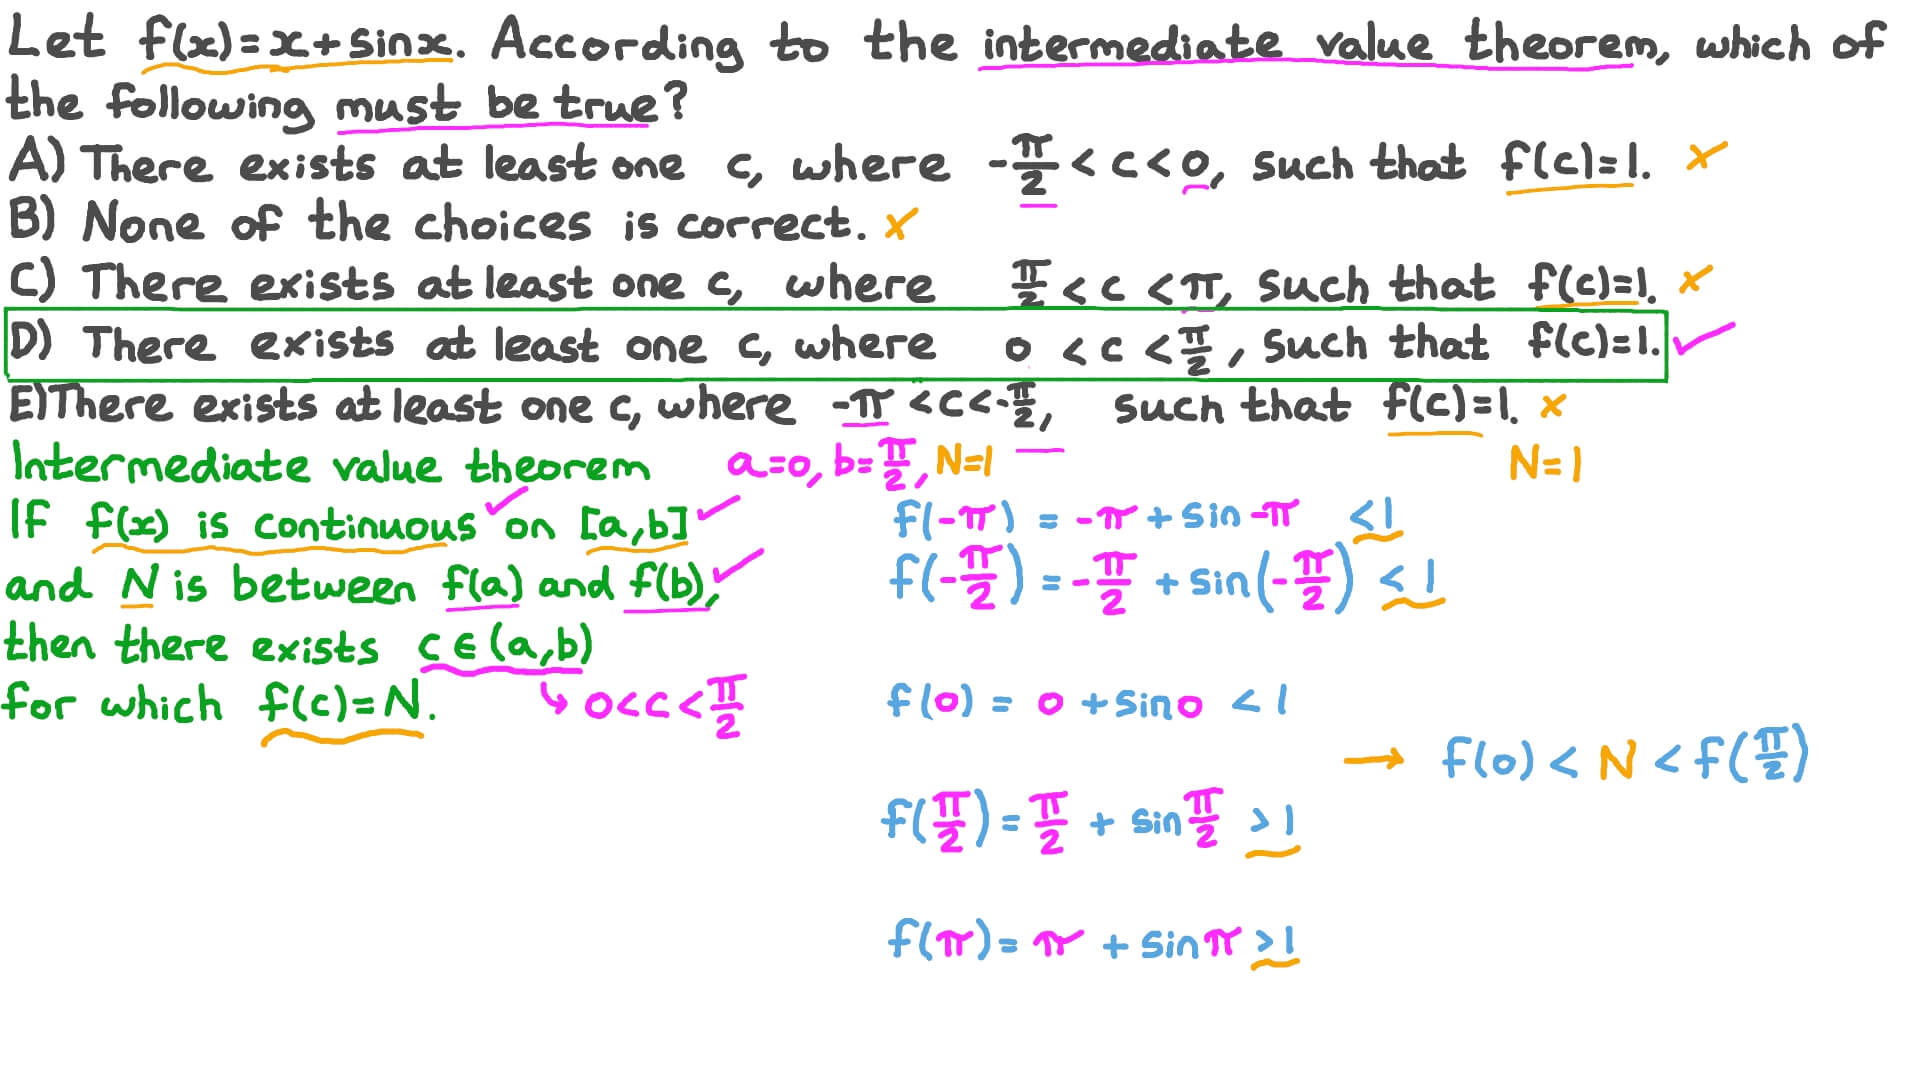 Let f(x)=x+sinx. According to the intermediate value theorem, which of
the following must be true?
A) There exists at least one c, where -π/2 < c < 0, such that f(c)=1. ×
B) None of the choices is correct. ×
C) There exists at least one c, where π/2 < c < π, such that f(c)=1. ×
D) There exists at least one c, where 0 < c < π/2, such that f(c)=1. ✓
E) There exists at least one c, where -π < c < -π/2, such that f(c)=1. ×
Intermediate value theorem a=0, b=π/2, N=1
If f(x) is continuous ✓ on [a,b] ✓
and N is between f(a) and f(b), ✓
then there exists c∈(a,b)
for which f(c)=N. ↳ 0<c<π/2
N=1
f(-π) = -π + sin -π <1
f(-π/2) = -π/2 + sin(-π/2) < 1
f(0) = 0 + sin0 < 1
→ f(0) < N < f(π/2)
f(π/2) = π/2 + sin π/2 >1
f(π) = π + sin π >1